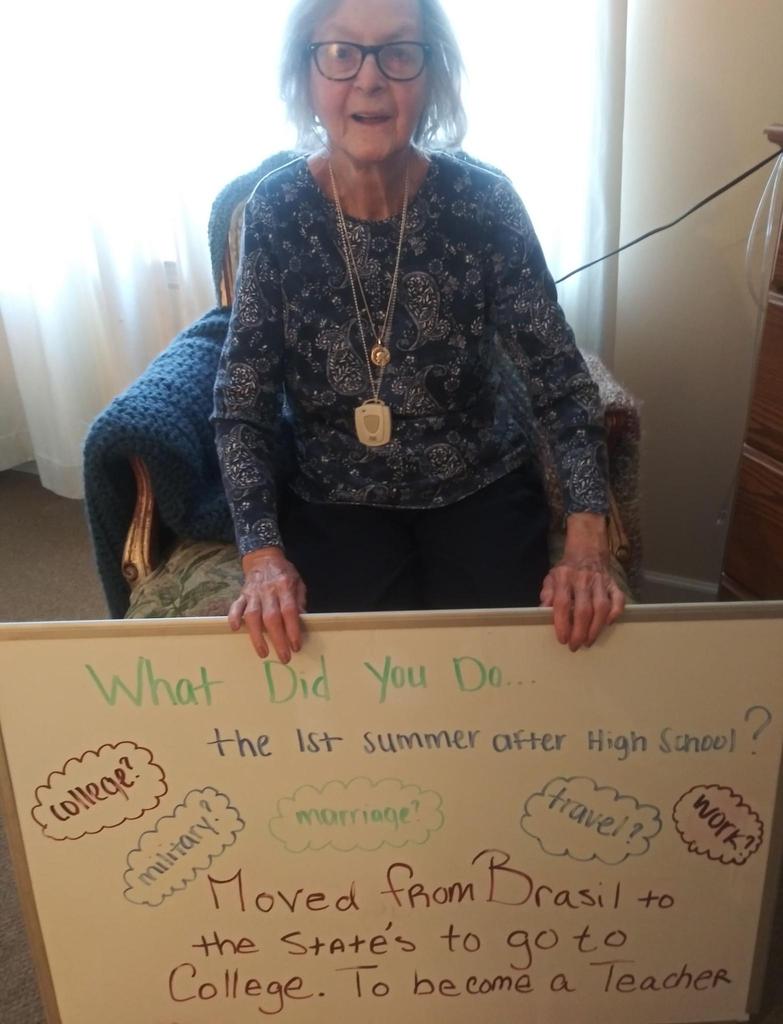 What Did You Do...
the 1st summer after High School?
college?
military?
marriage?
travel?
work?
Moved from Brasil to
the State's to go to
College. To become a Teacher